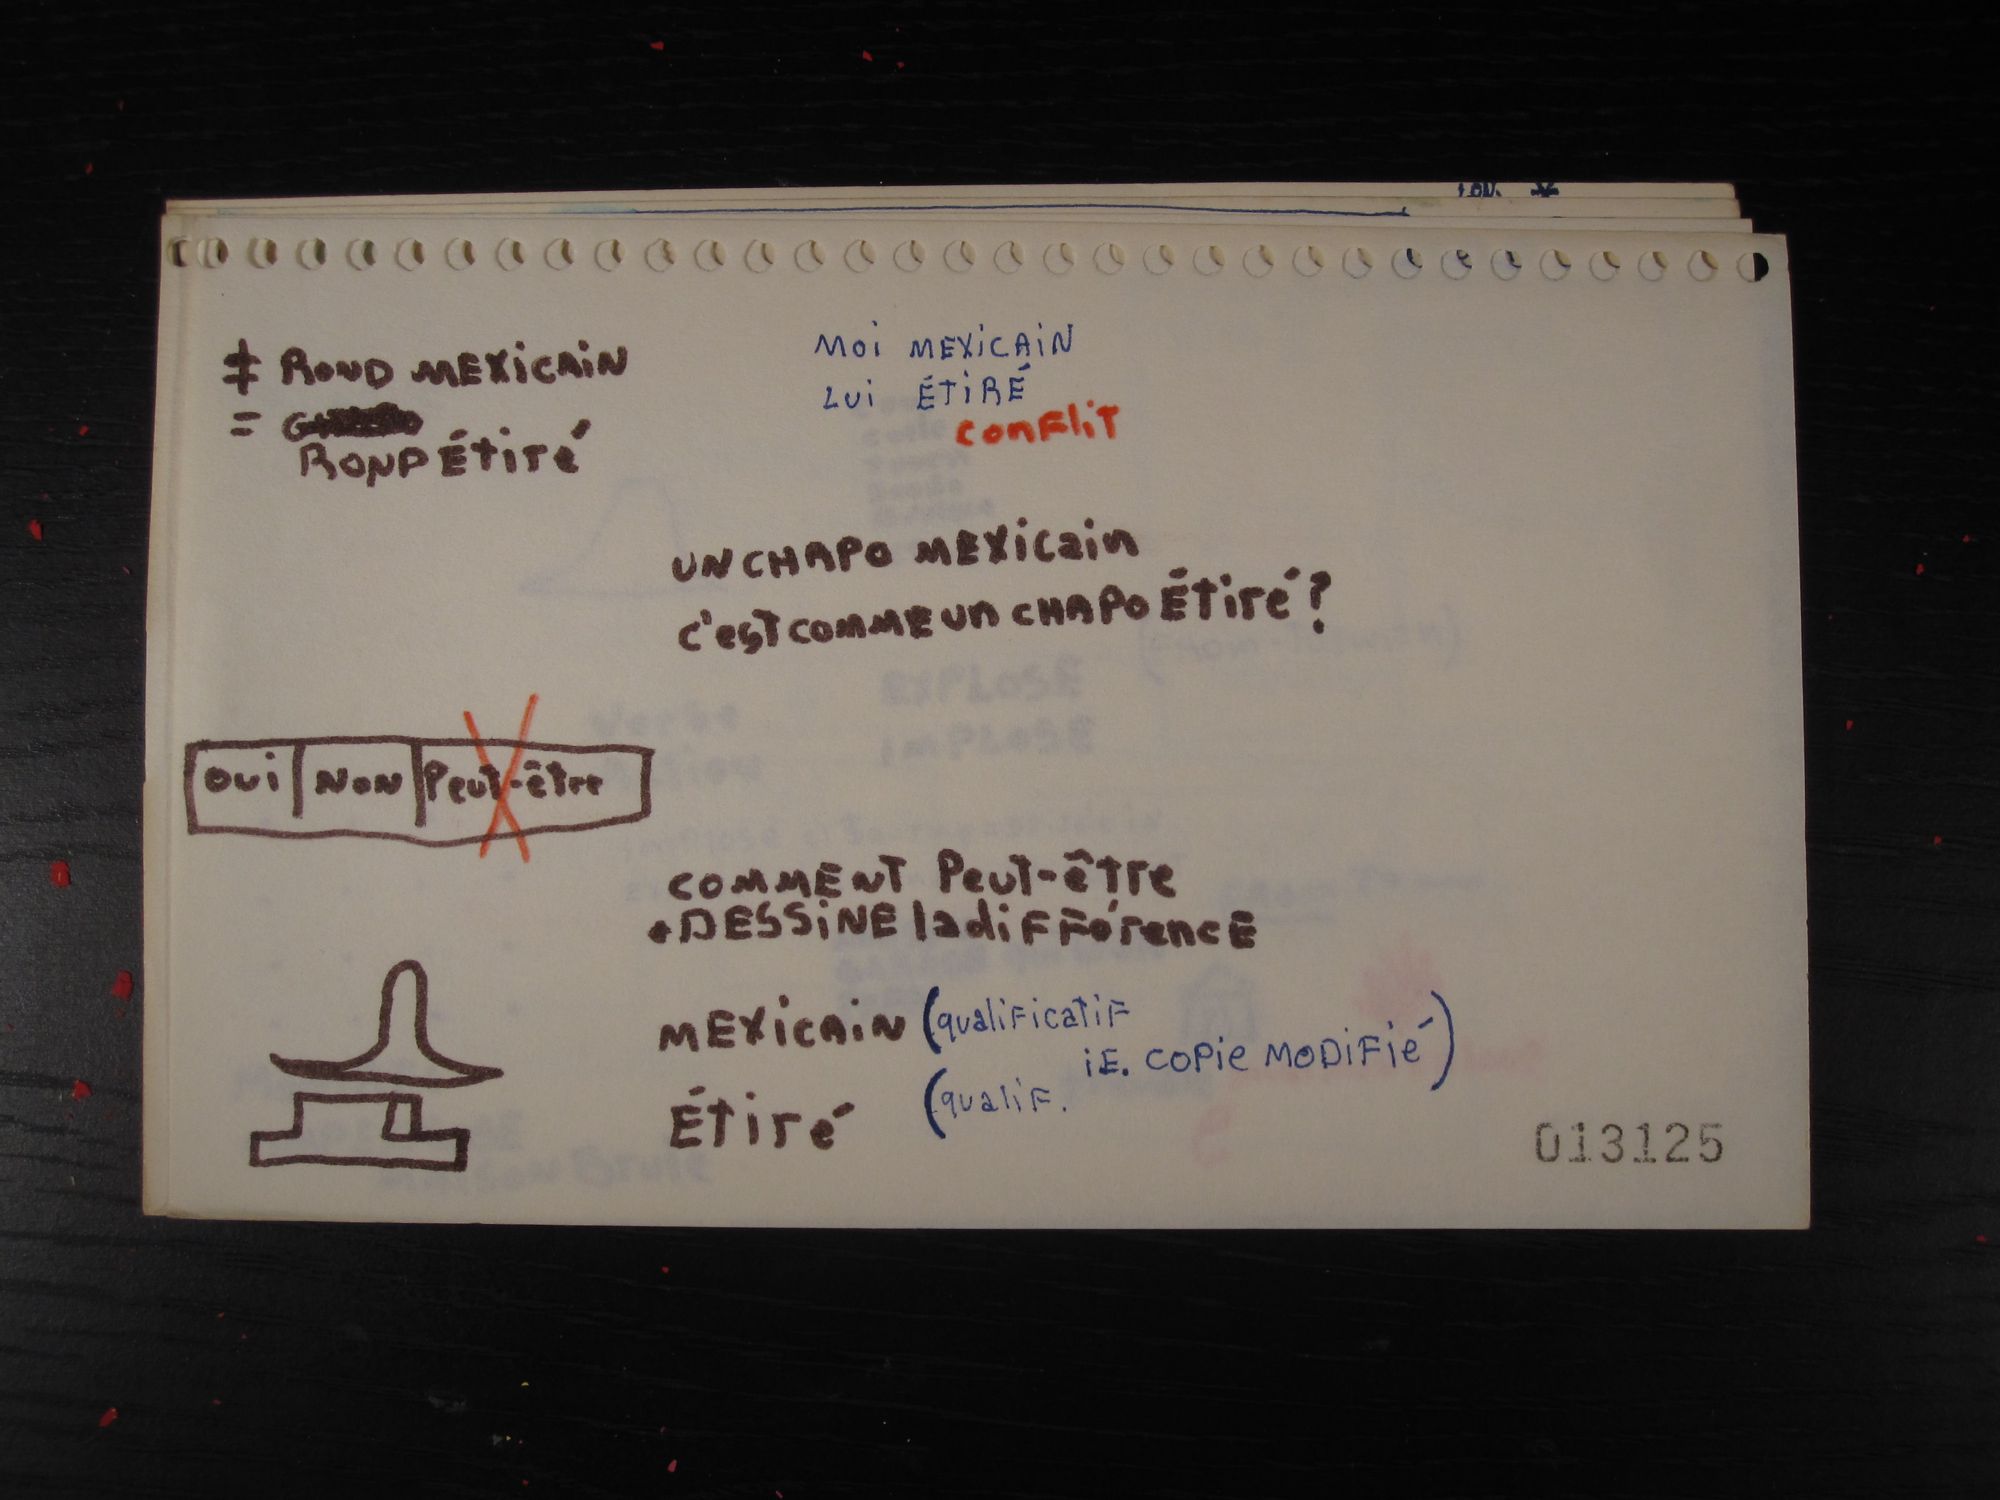 ≠ ROND MEXICAIN
=
ROND ÉTIRÉ
MOI MEXICAIN
LUI ÉTIRÉ
CONFLIT
UN CHAPO MEXICAIN
C'EST COMME UN CHAPO ÉTIRÉ?
OUI NON Peut-être
COMMENT Peut-être
+ DESSINE la diFFÉrENCE
MEXICAIN (qualiFicatiF
i.E. COPIE MODIFIÉ)
ÉTIRÉ (qualiF.
013125